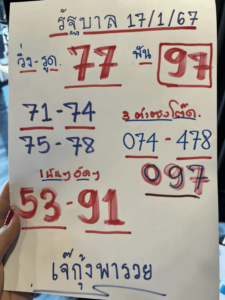 รัฐบาล 17/1/67
วิ่ง-รูด. 77 ฟัน 97
71-74
75-78
3 ตัวตรงโต๊ด.
074-478
097
เน้นๆจัดๆ
53-91
เจ๊กุ้งพารวย